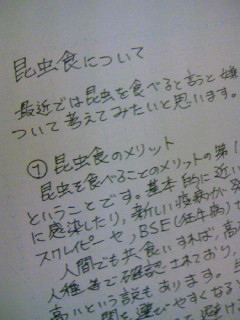 昆虫食について
最近では昆虫を食べると言うと嫌
ついて考えてみたいと思います。
① 昆虫食のメリット
昆虫を食べることのメリットの第1
ということです。基本的に近い
に感染したり、新しい疫病が発
スクレイピーや、BSE(狂牛病)な
人間でも共食いすれば、高
人種者で確認されており、
高いという説もあります。
病を運びやすくなる